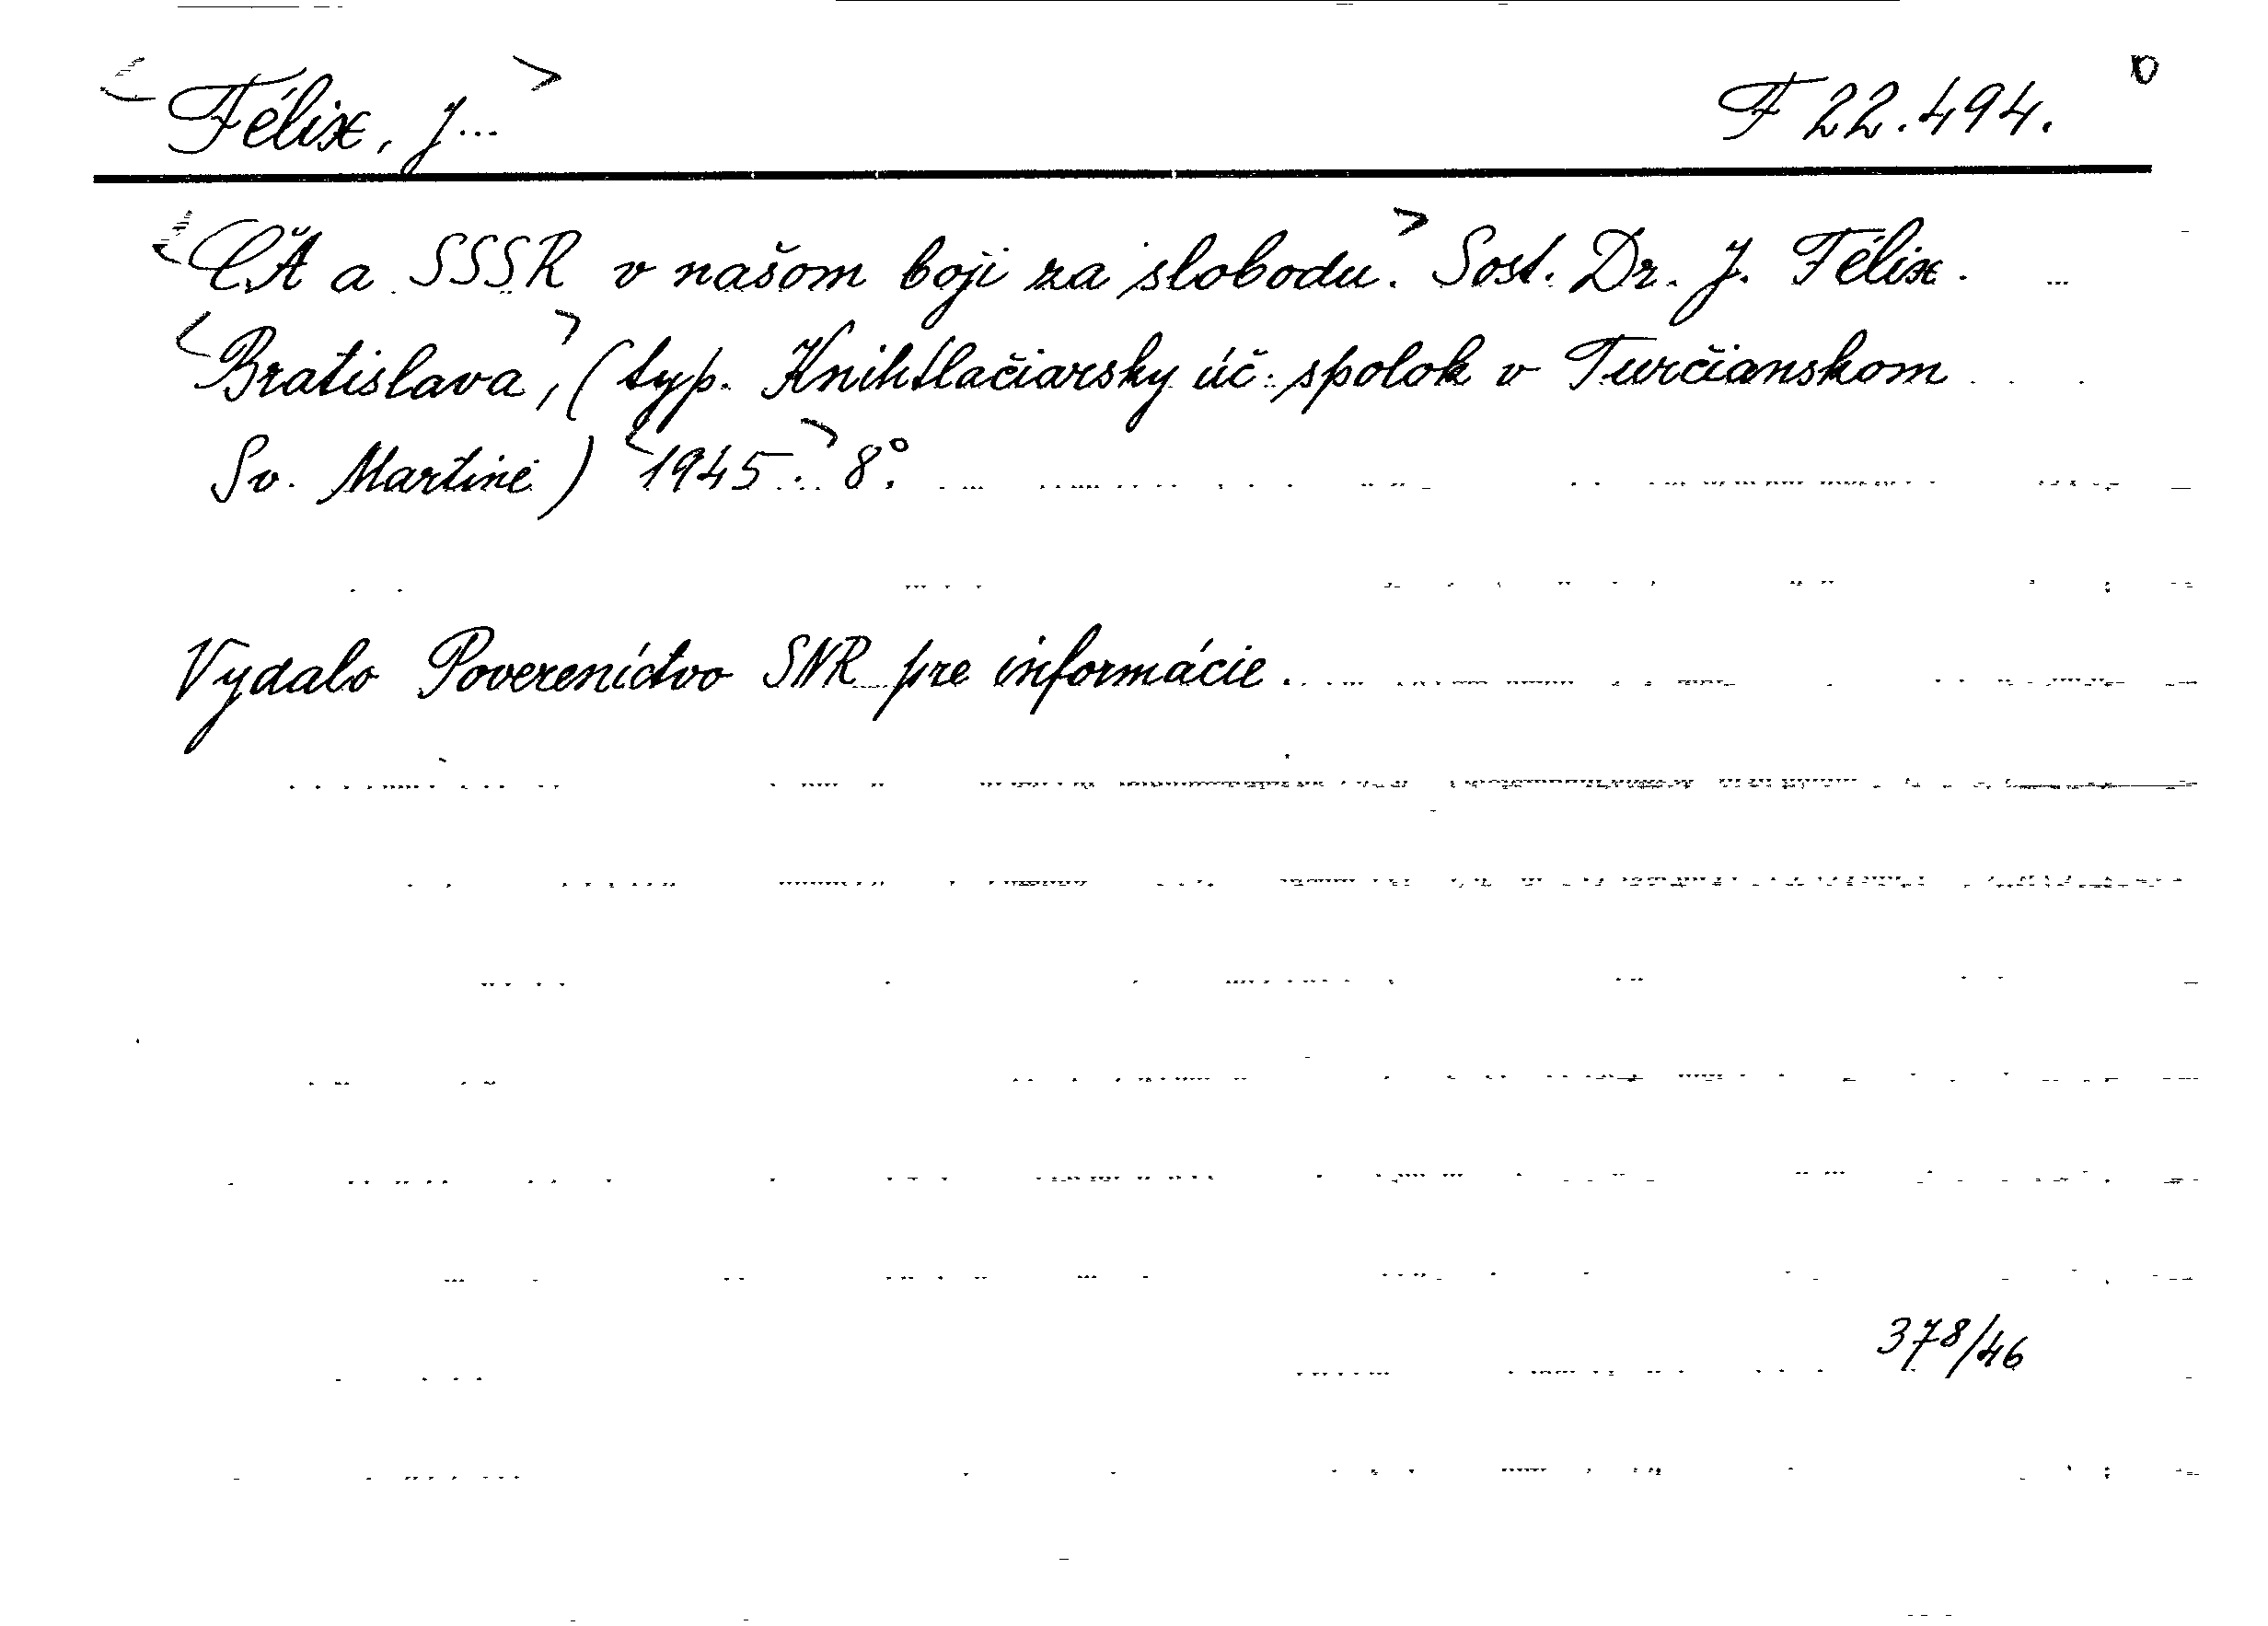 <Félix, J...> F 22.494.
<ČA a SSSR v našom boji za slobodu.> Sost. Dr. J. Félix.
<Bratislava,> (typ. Knihtlačiarsky úč. spolok v Turčianskom
Sv. Martine) <1945.> 8°.
Vydalo Povereníctvo SNR pre informácie.
378/46